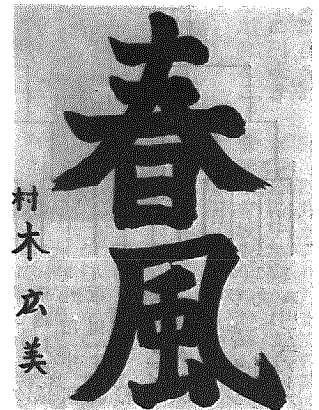 春風
村木広美